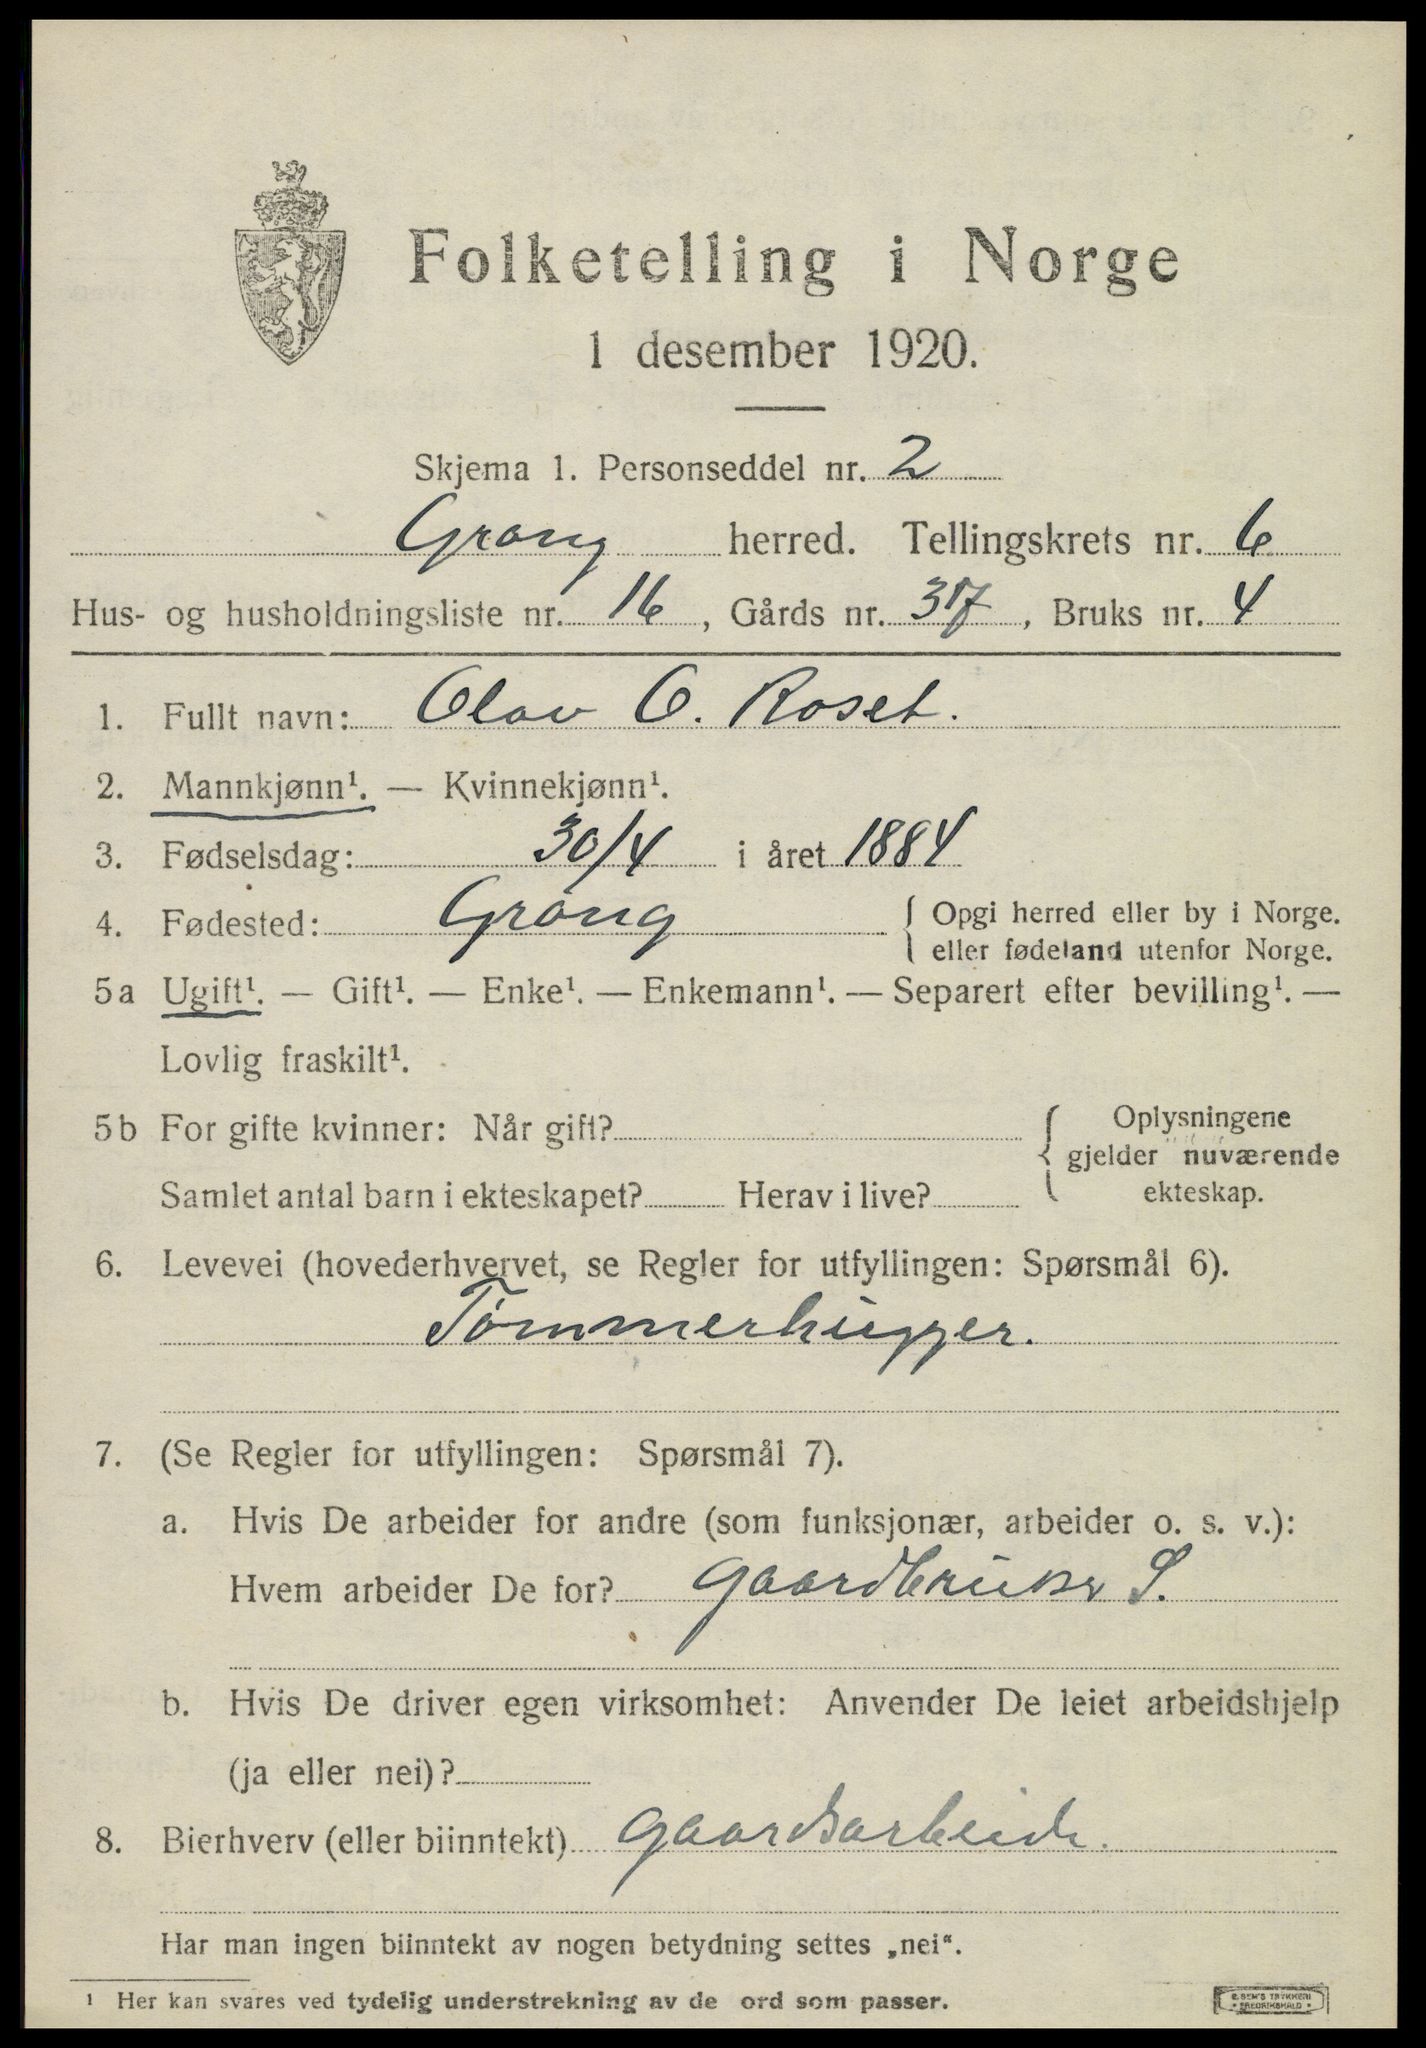 Folketelling i Norge
1 desember 1920.
Skjema 1. Personseddel nr. 2
Grong herred. Tellingskrets nr. 6
Hus- og husholdningsliste nr. 16, Gårds nr. 37, Bruks nr. 4
1. Fullt navn: Olav O. Roset.
2. Mannkjønn¹. — Kvinnekjønn¹.
3. Fødselsdag: 30/4 i året 1884
4. Fødested: Grong { Opgi herred eller by i Norge.
eller fødeland utenfor Norge.
5a Ugift¹. — Gift¹. — Enke¹. — Enkemann¹. — Separert efter bevilling¹. —
Lovlig fraskilt¹.
5b For gifte kvinner: Når gift? { Oplysningene
gjelder nuværende
Samlet antal barn i ekteskapet? Herav i live? ekteskap.
6. Levevei (hovederhvervet, se Regler for utfyllingen: Spørsmål 6).
Tømmerhugger.
7. (Se Regler for utfyllingen: Spørsmål 7).
a. Hvis De arbeider for andre (som funksjonær, arbeider o. s. v.):
Hvem arbeider De for? gaardbruker S.
b. Hvis De driver egen virksomhet: Anvender De leiet arbeidshjelp
(ja eller nei)?
8. Bierhverv (eller biinntekt) gaardsarbeide.
Har man ingen biinntekt av nogen betydning settes „nei“.
¹ Her kan svares ved tydelig understrekning av de ord som passer.
E. SEM'S TRYKKERI
• FREDRIKSHALD •